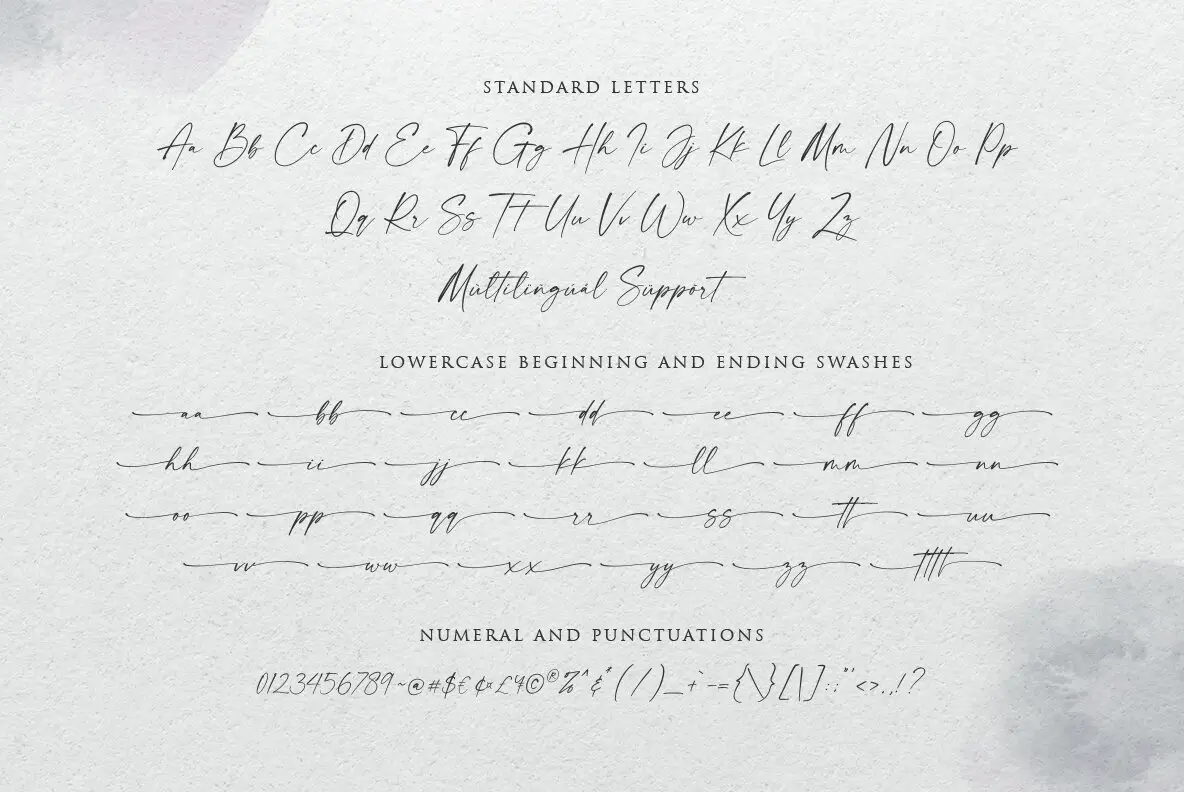 STANDARD LETTERS
Aa Bb Cc Dd Ee Ff Gg Hh Ii Jj Kk Ll Mm Nn Oo Pp
Qq Rr Ss Tt Uu Vv Ww Xx Yy Zz
Múltilingual Support
LOWERCASE BEGINNING AND ENDING SWASHES
aa bb cc dd ee ff gg
hh ii jj kk ll mm nn
oo pp qq rr ss tt uu
vv ww xx yy zz tttt
NUMERAL AND PUNCTUATIONS
0123456789~@#$€¢¤£¥©®%^&*(/)_+`-={\}[|]:;"'<>.,!?